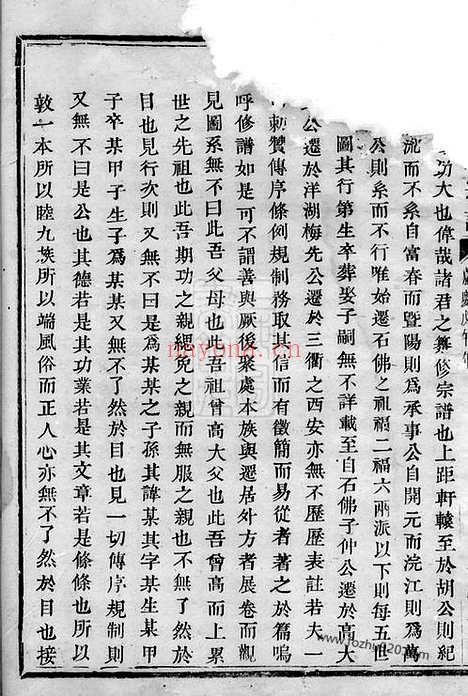 功大也偉哉諸君之纂修宗譜也上距軒轅至於胡公則紀
流而不系自富春而暨陽則為承事公自開元而浣江則為萬
公則系而不行唯始遷石佛之祖福二福六兩派以下則每五世
圖其行第生卒葬娶子嗣無不詳載至白石佛子仲公遷於高大
公遷於洋湖梅先公遷於三衢之西安亦無不歷歷表註若夫一
勑贊傳序條例規制務取其信而有徵簡而易從者著之於篇嗚
呼修譜如是可不謂善與厥後聚處本族與遷居外方者展卷而觀
見圖系無不曰此吾父母也此吾祖曾高大父也此吾曾高而上累
世之先祖也此吾期功之親緦免之親而無服之親也不無了然於
目也見行次則又無不曰是為某某之子孫其諱某其字某生某甲
子卒某甲子生子為某某又無不了然於目也見一切傳序規制則
又無不曰是公也其德若是其功業若是其文章若是條條也所以
敦一本所以睦九族所以端風俗而正人心亦無不了然於目也接
nayona.com
www.fozhu920.com